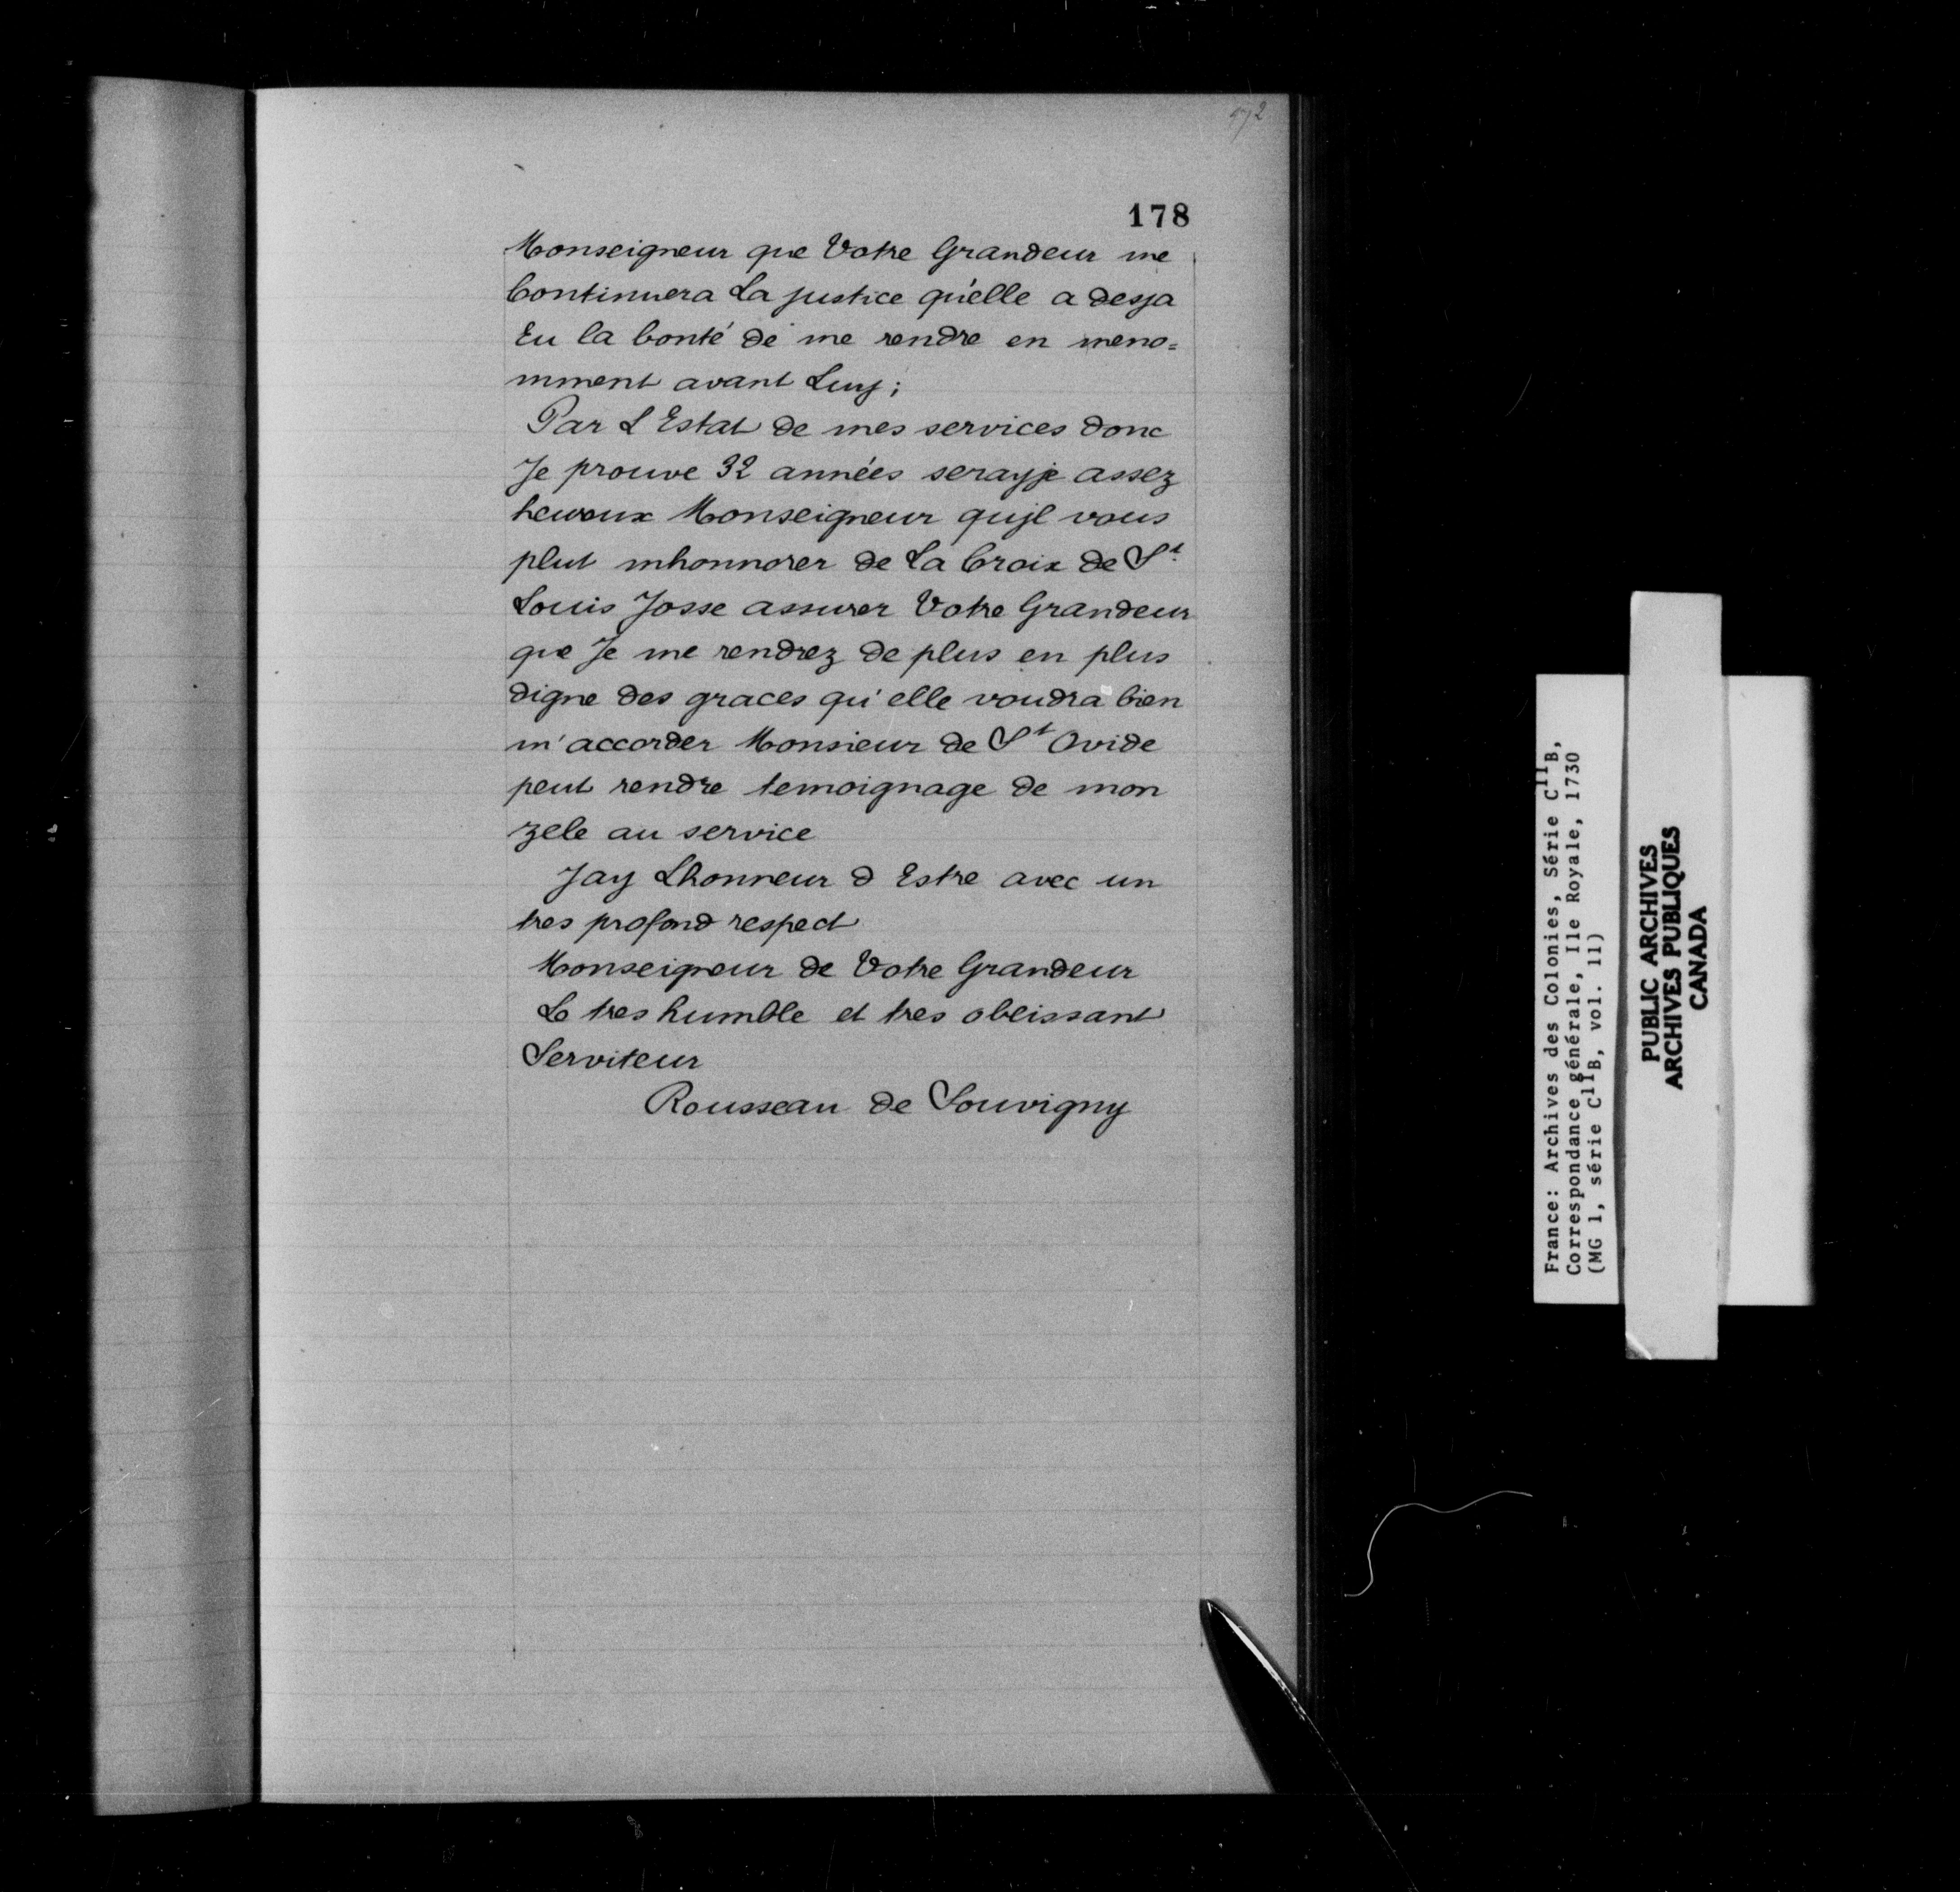 178
Monseigneur que Votre Grandeur me
Continuera La justice qu'elle a desja
Eu la bonté de me rendre en meno=
mment avant Luy;
Par L Estat de mes services donc
Je prouve 32 années serayje assez
heureux Monseigneur qujl vous
plut mhonnorer de La Croix de St.
Louis Josse assurer Votre Grandeur
que Je me rendrez de plus en plus
digne des graces qu'elle voudra bien
m'accorder Monsieur de St Ovide
peut rendre temoignage de mon
zele au service
Jay Lhonneur d Estre avec un
tres profond respect
Monseigneur de Votre Grandeur
Le tres humble et tres obeissant
Serviteur
Rousseau de Souvigny
France: Archives des Colonies, Série C11B,
Correspondance générale, Ile Royale, 1730
(MG 1, série C11B, vol. 11)
PUBLIC ARCHIVES
ARCHIVES PUBLIQUES
CANADA